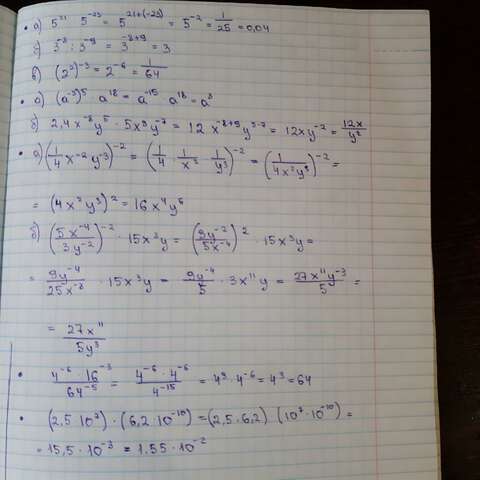 • а) 5²¹ · 5⁻²³ = 5²¹⁺⁽⁻²³⁾ = 5⁻² = 1/25 = 0,04
б) 3⁻⁸ : 3⁻⁹ = 3⁻⁸⁺⁹ = 3
в) (2²)⁻³ = 2⁻⁶ = 1/64
• а) (a⁻³)⁵ · a¹⁸ = a⁻¹⁵ · a¹⁸ = a³
б) 2,4x⁻⁸y⁵ · 5x⁹y⁻⁷ = 12x⁻⁸⁺⁹y⁵⁻⁷ = 12xy⁻² = 12x/y²
• а) (1/4 x⁻²y⁻³)⁻² = (1/4 · 1/x² · 1/y³)⁻² = (1/4x²y³)⁻² =
= (4x²y³)² = 16x⁴y⁶
б) (5x⁻⁴/3y⁻²)⁻² · 15x³y = (3y⁻²/5x⁻⁴)² · 15x³y =
= 9y⁻⁴/25x⁻⁸ · 15x³y = 9y⁻⁴/5 · 3x¹¹y = 27x¹¹y⁻³/5 =
= 27x¹¹/5y³
• 4⁻⁶ · 16⁻³/64⁻⁵ = 4⁻⁶ · 4⁻⁶/4⁻¹⁵ = 4⁹ · 4⁻⁶ = 4³ = 64
• (2,5 · 10⁷) · (6,2 · 10⁻¹⁰) = (2,5 · 6,2) (10⁷ · 10⁻¹⁰) =
= 15,5 · 10⁻³ = 1,55 · 10⁻²